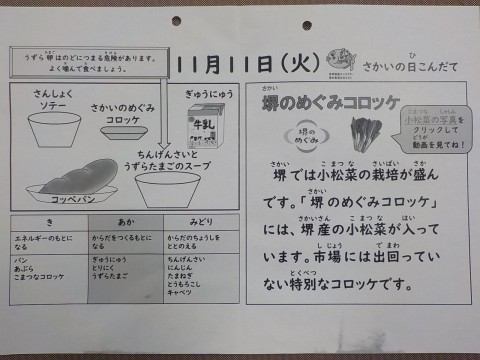 うずら卵はのどにつまる危険があります。
よく噛んで食べましょう。
11月11日(火)
さかいの日こんだて
さんしょく
ソテー
さかいのめぐみ
コロッケ
ぎゅうにゅう
牛乳
ちんげんさいと
うずらたまごのスープ
コッペパン
き
あか
みどり
エネルギーのもとに
なる
からだをつくるもとに
なる
からだのちょうしを
ととのえる
パン
あぶら
こまつなコロッケ
ぎゅうにゅう
とりにく
うずらたまご
ちんげんさい
にんじん
たまねぎ
とうもろこし
キャベツ
堺のめぐみコロッケ
堺の
めぐみ
小松菜の写真を
クリックして
動画を見てね!
堺では小松菜の栽培が盛ん
です。「堺のめぐみコロッケ」
には、堺産の小松菜が入って
います。市場には出回ってい
ない特別なコロッケです。